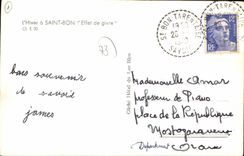 L'Hiver à SAINT-BON "Effet de givre"
73
ST BON TARENTAISE
20
SAVOIE
bons souvenir
de savoie
james
Mademoiselle Amar
professeur de Piano
place de la République
Mostaganem
Département Oran